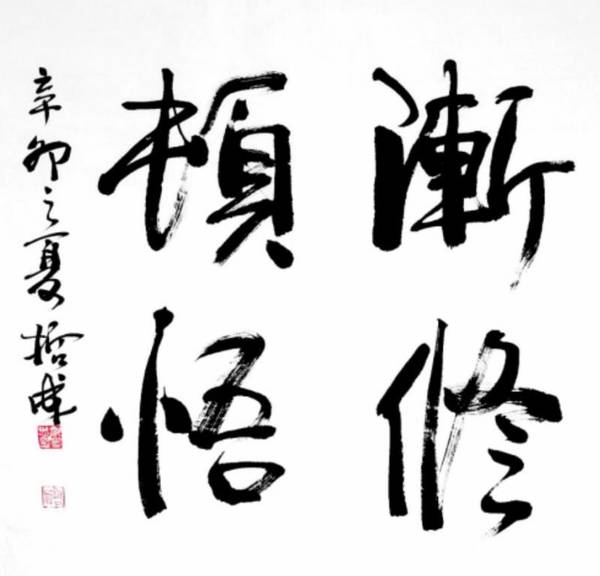 漸修
頓悟
辛卯之夏哲成